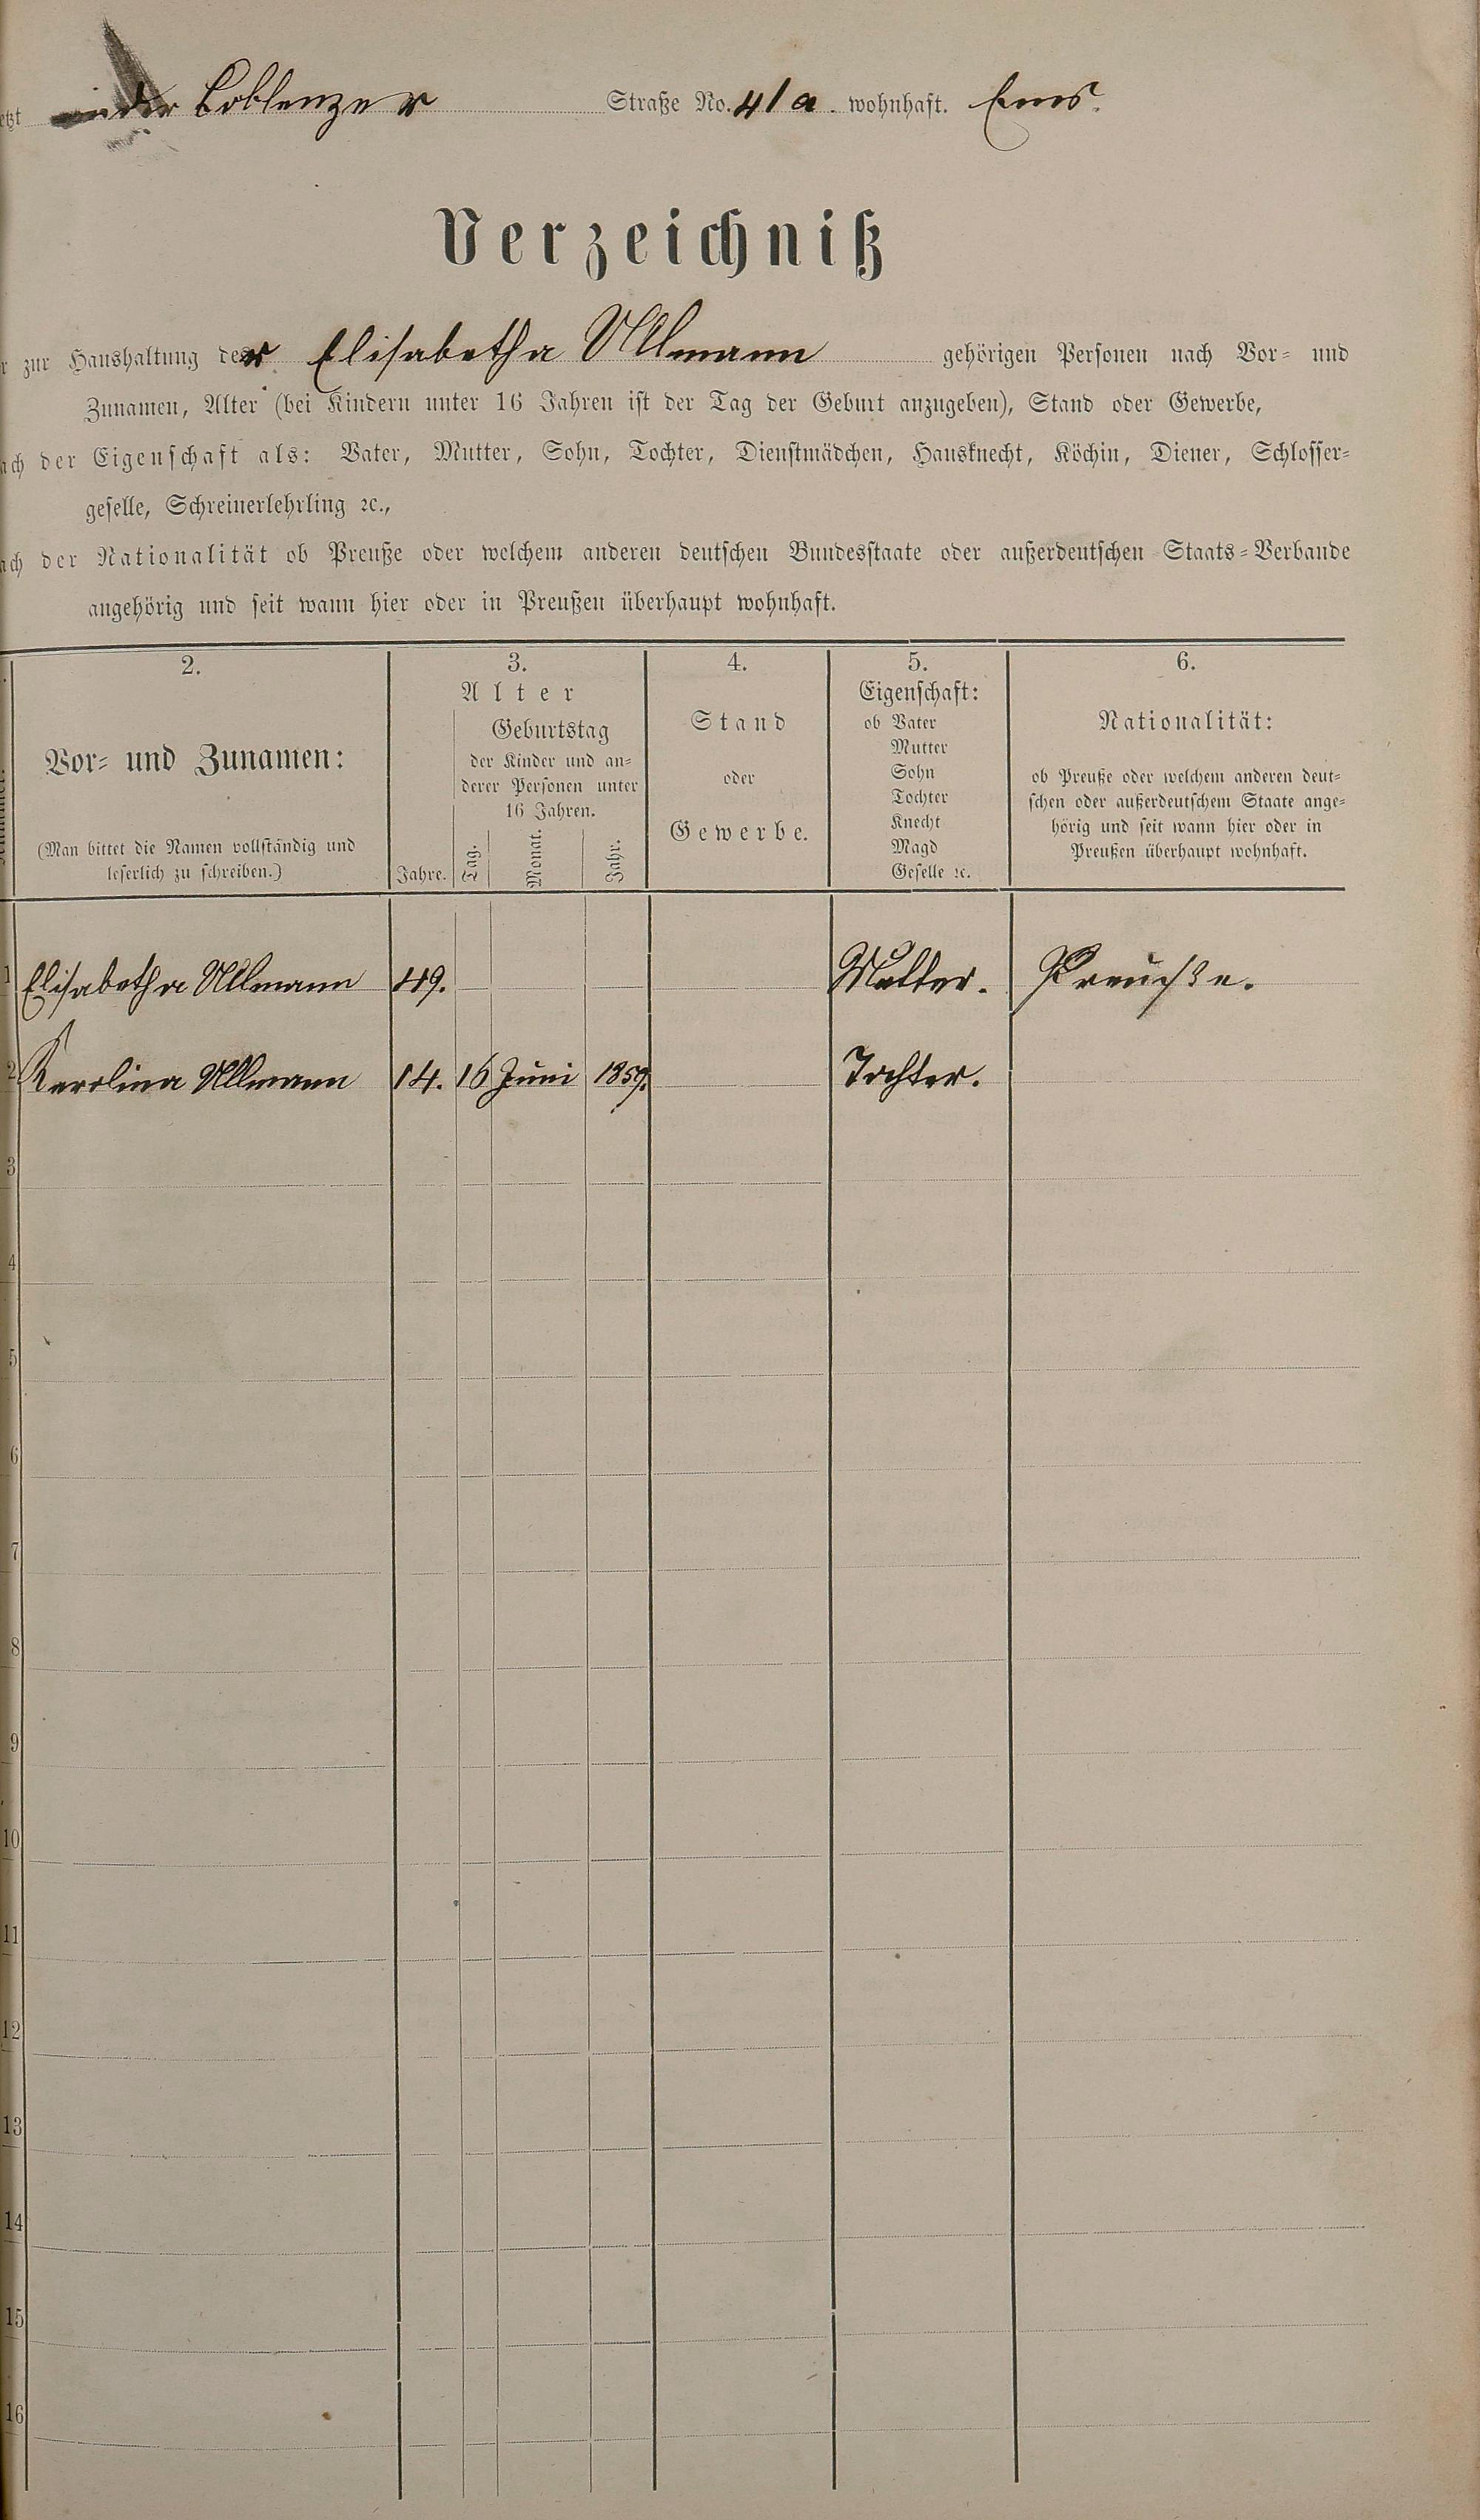 etzt in der Coblenzer Straße No. 41a. wohnhaft. Ems.
Verzeichniß
r zur Haushaltung der Elisabetha Ullmann gehörigen Personen nach Vor- und
Zunamen, Alter (bei Kindern unter 16 Jahren ist der Tag der Geburt anzugeben), Stand oder Gewerbe,
ach der Eigenschaft als: Vater, Mutter, Sohn, Tochter, Dienstmädchen, Hausknecht, Köchin, Diener, Schlosser-
geselle, Schreinerlehrling ꝛc.,
ach der Nationalität ob Preuße oder welchem anderen deutschen Bundesstaate oder außerdeutschen Staats-Verbande
angehörig und seit wann hier oder in Preußen überhaupt wohnhaft.
2.
Vor- und Zunamen:
(Man bittet die Namen vollständig und
leserlich zu schreiben.)
3.
Alter
Geburtstag
der Kinder und an-
derer Personen unter
16 Jahren.
Jahre. Tag. Monat. Jahr.
4.
Stand
oder
Gewerbe.
5.
Eigenschaft:
ob Vater
Mutter
Sohn
Tochter
Knecht
Magd
Geselle ꝛc.
6.
Nationalität:
ob Preuße oder welchem anderen deut-
schen oder außerdeutschem Staate ange-
hörig und seit wann hier oder in
Preußen überhaupt wohnhaft.
1 Elisabetha Ullmann 49. Mutter. Preuße.
2 Karolina Ullmann 14. 16 Juni 1859. Tochter.
3
4
5
6
7
8
9
10
11
12
13
14
15
16